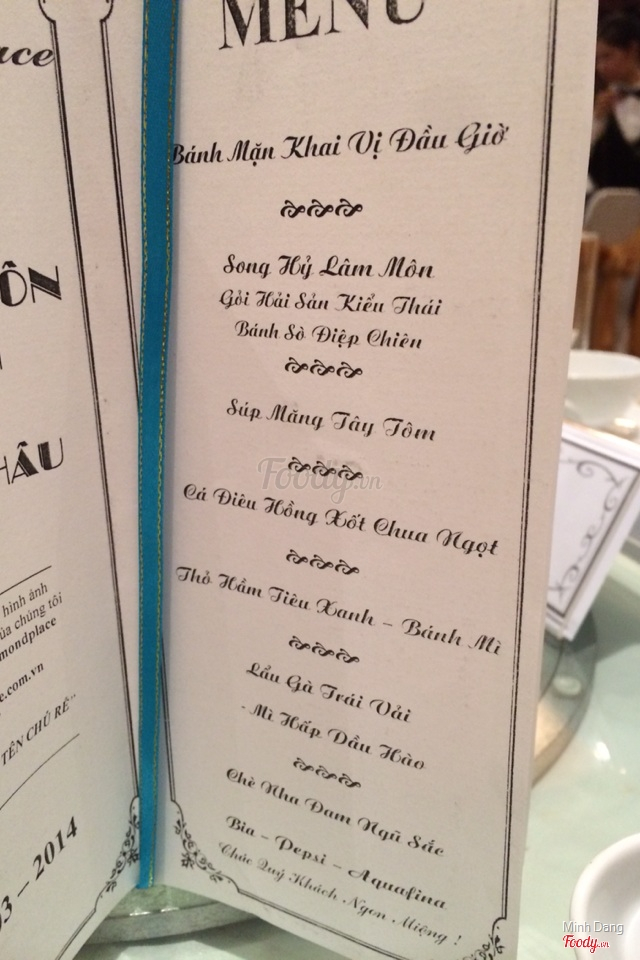 MENU
Bánh Mặn Khai Vị Đầu Giờ
Song Hỷ Lâm Môn
Gỏi Hải Sản Kiểu Thái
Bánh Sò Điệp Chiên
Súp Măng Tây Tôm
Cá Diêu Hồng Xốt Chua Ngọt
Thỏ Hầm Tiêu Xanh – Bánh Mì
Lẩu Gà Trái Vải
- Mì Hấp Dầu Hào
Chè Nha Đam Ngũ Sắc
Bia – Pepsi – Aquafina
Chúc Quý Khách Ngon Miệng !
hình ảnh
của chúng tôi
mondplace
.com.vn
TÊN CHÚ RỂ"
03 – 2014
Foody.vn
Minh Dang
Foody.vn